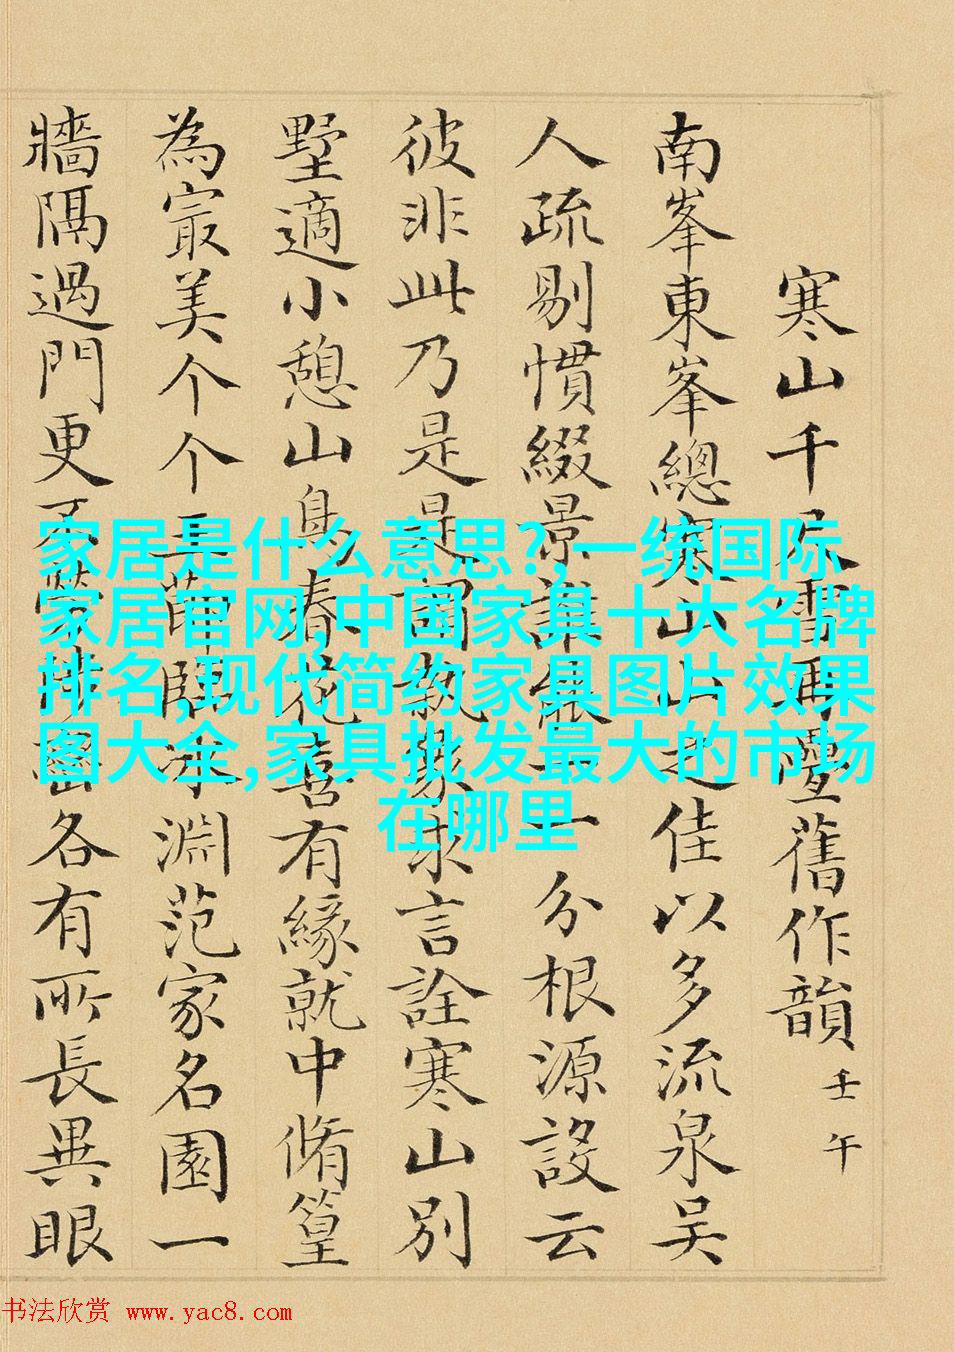 寒山千尺雪再疊舊作韻 壬午
南峯東峯總寒山山之佳以多流泉吴
人疏剔慣綴景 一分根源設云
彼非此乃是是謂執象求言詮寒山別
墅適小憩山鳥春花喜有緣就中脩篁
為最美个个玉節臨冰淵范家名園一
牆隔過門更不勞排各有所長異眼
家居是什么意思?,一统国际
家居官网,中国家具十大名牌
排名,现代简约家具图片效果
图大全,家具批发最大的市场
在哪里
书法欣赏 www.yac8.com